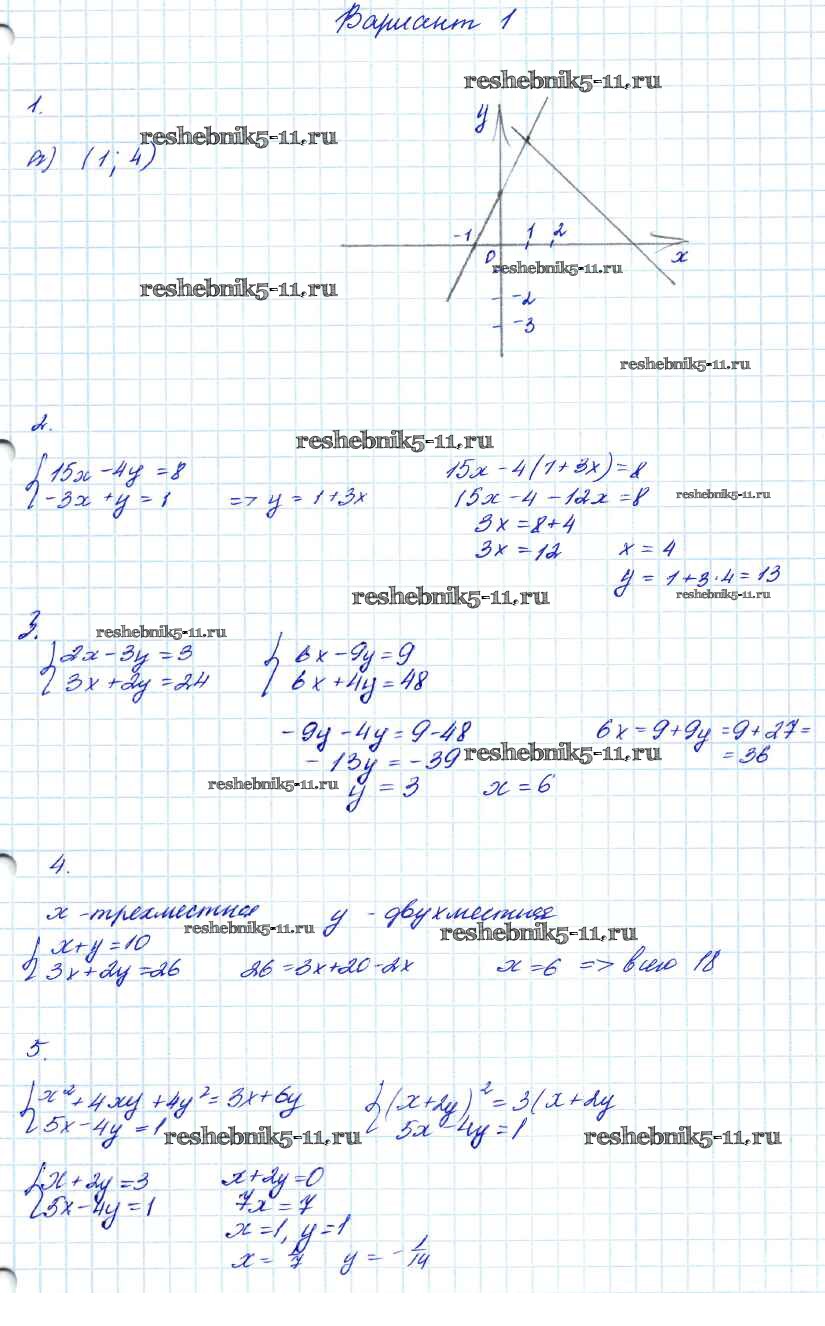 Вариант 1
reshebnik5-11.ru
y
1.
reshebnik5-11.ru
а) (1; 4)
-1 0 1 2 x
reshebnik5-11.ru
reshebnik5-11.ru
-2
-3
reshebnik5-11.ru
2.
reshebnik5-11.ru
{ 15x - 4y = 8
-3x + y = 1 => y = 1 + 3x
15x - 4(1 + 3x) = 8
15x - 4 - 12x = 8
reshebnik5-11.ru
3x = 8 + 4
3x = 12 x = 4
y = 1 + 3·4 = 13
reshebnik5-11.ru
reshebnik5-11.ru
3.
reshebnik5-11.ru
{ 2x - 3y = 3
3x + 2y = 24
{ 6x - 9y = 9
6x + 4y = 48
-9y - 4y = 9 - 48
-13y = -39
y = 3 x = 6
6x = 9 + 9y = 9 + 27 =
= 36
reshebnik5-11.ru
reshebnik5-11.ru
4.
x - трехместная y - двухместная
reshebnik5-11.ru
reshebnik5-11.ru
{ x + y = 10
3x + 2y = 26 26 = 3x + 20 - 2x x = 6 => всего 18
5.
{ x² + 4xy + 4y² = 3x + 6y
5x - 4y = 1
{ (x + 2y)² = 3(x + 2y
5x - 4y = 1
reshebnik5-11.ru
reshebnik5-11.ru
{ x + 2y = 3
5x - 4y = 1
x + 2y = 0
7x = 7
x = 1, y = 1
x = 1/7 y = - 1/14